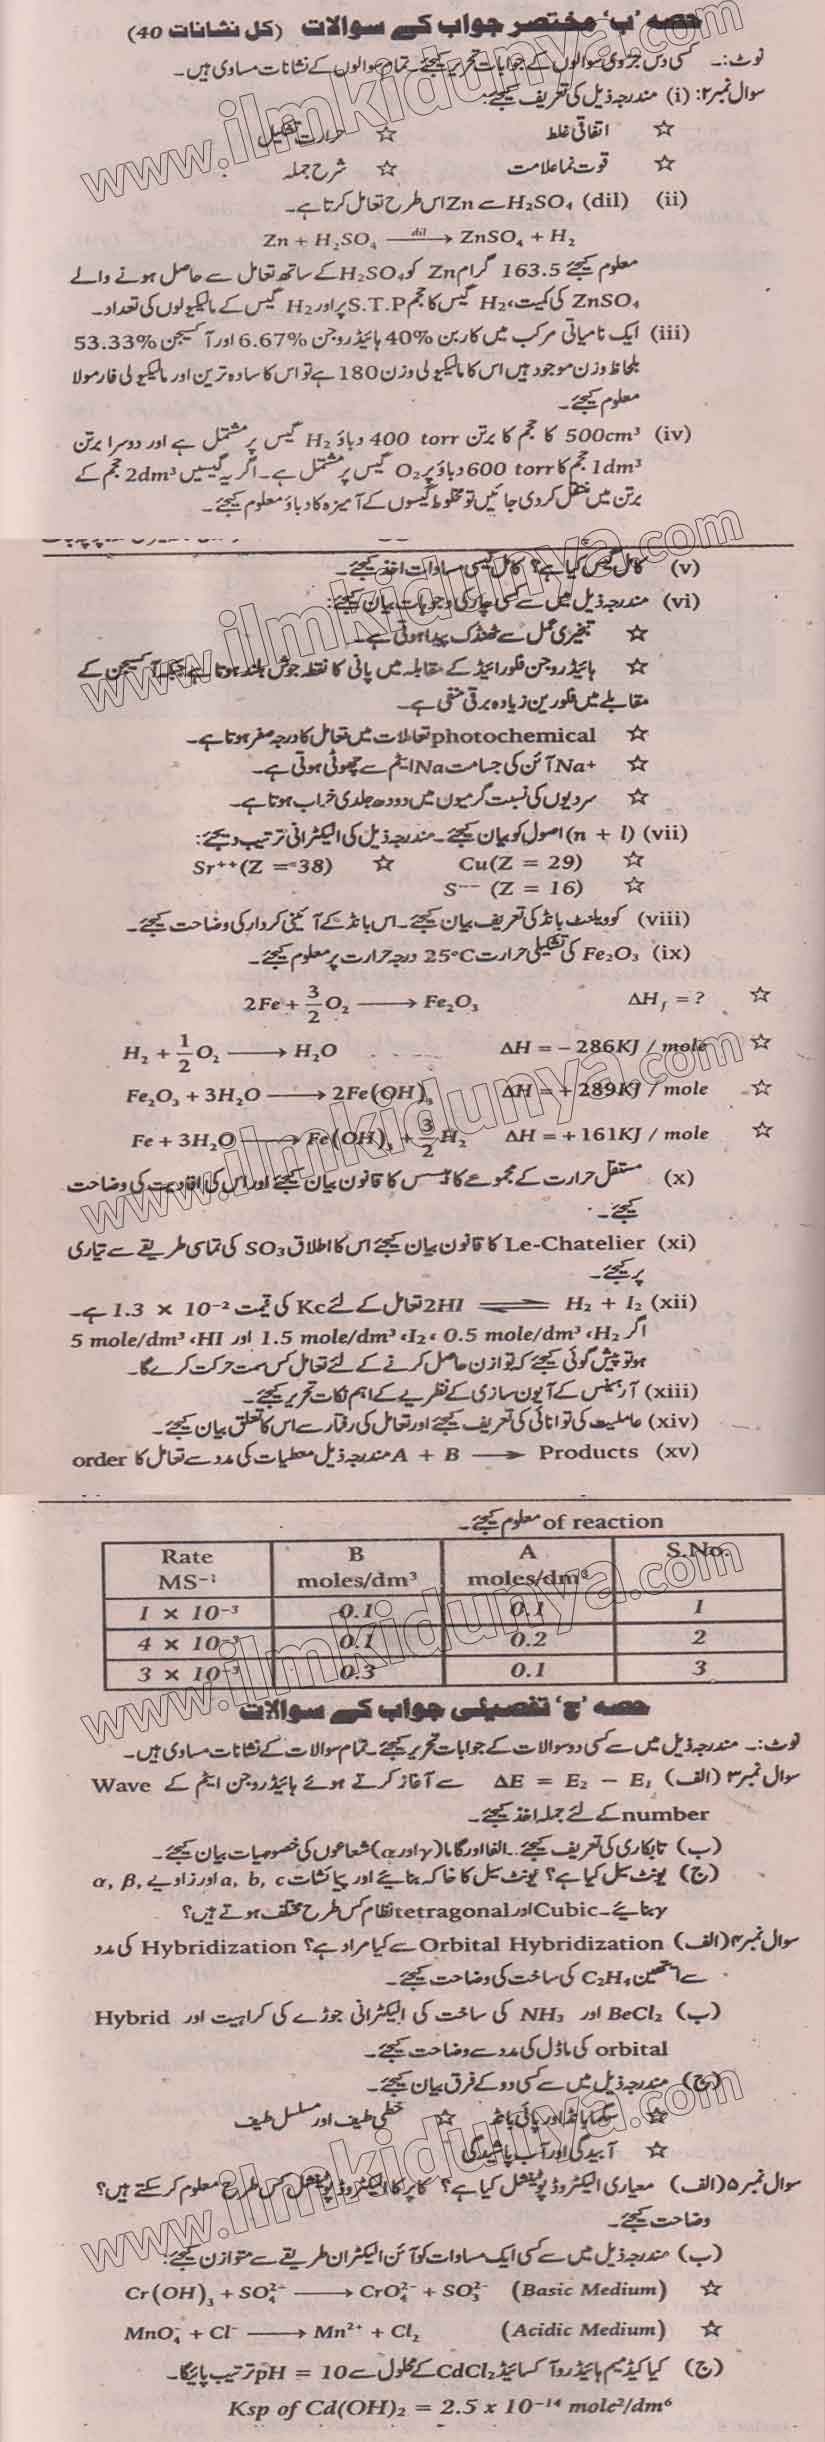 حصہ ’ب‘ مختصر جواب کے سوالات (کل نشانات 40)
نوٹ:۔ کسی دس جزوی سوالوں کے جوابات تحریر کیجئے۔ تمام سوالوں کے نشانات مساوی ہیں۔
سوال نمبر۲: (i) مندرجہ ذیل کی تعریف کیجئے:
☆ اتفاقی غلط ☆ حرارت تشکیل
☆ قوت نما علامت ☆ شرح جملہ
(ii) H₂SO₄ (dil) سے Zn اس طرح تعامل کرتا ہے۔
Zn + H₂SO₄ —dil→ ZnSO₄ + H₂
معلوم کیجئے 163.5 گرام Zn کو H₂SO₄ کے ساتھ تعامل سے حاصل ہونے والے
ZnSO₄ کی کمیت، H₂ گیس کا حجم S.T.P پر اور H₂ گیس کے مالیکیولوں کی تعداد۔
(iii) ایک نامیاتی مرکب میں کاربن 40% ہائیڈروجن 6.67% اور آکسیجن 53.33%
بلحاظ وزن موجود ہیں اس کا مالیکیولی وزن 180 ہے تو اس کا سادہ ترین اور مالیکیولی فارمولا
معلوم کیجئے۔
(iv) 500cm³ کا حجم کا برتن 400 torr دباؤ H₂ گیس پر مشتمل ہے اور دوسرا برتن
1dm³ حجم کا 600 torr دباؤ پر O₂ گیس پر مشتمل ہے۔ اگر یہ گیسیں 2dm³ حجم کے
برتن میں منتقل کر دی جائیں تو مخلوط گیسوں کے آمیزہ کا دباؤ معلوم کیجئے۔
(v) کامل گیس کیا ہے؟ کامل گیسی مساوات اخذ کیجئے۔
(vi) مندرجہ ذیل میں سے کسی چار کی وجوہات بیان کیجئے:
☆ تبخیری عمل سے ٹھنڈک پیدا ہوتی ہے۔
☆ ہائیڈروجن فلورائیڈ کے مقابلہ میں پانی کا نقطہ جوش بلند ہوتا ہے جبکہ آکسیجن کے
مقابلے میں فلورین زیادہ برقی منفی ہے۔
☆ photochemical تعاملات میں تعامل کا درجہ صفر ہوتا ہے۔
☆ Na⁺ آئن کی جسامت Na ایٹم سے چھوٹی ہوتی ہے۔
☆ سردیوں کی نسبت گرمیوں میں دودھ جلدی خراب ہوتا ہے۔
(vii) (n + l) اصول کو بیان کیجئے۔ مندرجہ ذیل کی الیکٹرانی ترتیب دیجئے:
☆ Cu(Z = 29) ☆ Sr⁺⁺(Z = 38)
☆ S⁻⁻ (Z = 16)
(viii) کوویلنٹ بانڈ کی تعریف بیان کیجئے۔ اس بانڈ کے آئینی کردار کی وضاحت کیجئے۔
(ix) Fe₂O₃ کی تشکیلی حرارت 25°C درجہ حرارت پر معلوم کیجئے۔
2Fe + 3/2 O₂ ⟶ Fe₂O₃ ΔH_f = ? ☆
H₂ + 1/2 O₂ ⟶ H₂O ΔH = – 286KJ / mole ☆
Fe₂O₃ + 3H₂O ⟶ 2Fe(OH)₃ ΔH = + 289KJ / mole ☆
Fe + 3H₂O ⟶ Fe(OH)₃ + 3/2 H₂ ΔH = + 161KJ / mole ☆
(x) مستقل حرارت کے مجموعے کا ہیس کا قانون بیان کیجئے اور اس کی افادیت کی وضاحت
کیجئے۔
(xi) Le-Chatelier کا قانون بیان کیجئے اس کا اطلاق SO₃ کی تماسی طریقے سے تیاری
پر کیجئے۔
(xii) 2HI ⇌ H₂ + I₂ تعامل کے لئے Kc کی قیمت 1.3 × 10⁻² ہے۔
اگر H₂، 0.5 mole/dm³ ،I₂، 1.5 mole/dm³ اور HI، 5 mole/dm³
ہو تو پیش گوئی کیجئے کہ توازن حاصل کرنے کے لئے تعامل کس سمت حرکت کرے گا۔
(xiii) آرہینس کے آیون سازی کے نظریے کے اہم نکات تحریر کیجئے۔
(xiv) عاملیت کی توانائی کی تعریف کیجئے اور تعامل کی رفتار سے اس کا تعلق بیان کیجئے۔
(xv) A + B ⟶ Products مندرجہ ذیل معطیات کی مدد سے تعامل کا order
of reaction معلوم کیجئے۔
Rate B A S.No.
MS⁻¹ moles/dm³ moles/dm³
1 × 10⁻³ 0.1 0.1 1
4 × 10⁻³ 0.1 0.2 2
3 × 10⁻³ 0.3 0.1 3
حصہ ’ج‘ تفصیلی جواب کے سوالات
نوٹ:۔ مندرجہ ذیل میں سے کسی دو سوالات کے جوابات تحریر کیجئے۔ تمام سوالات کے نشانات مساوی ہیں۔
سوال نمبر۳ (الف) ΔE = E₂ – E₁ سے آغاز کرتے ہوئے ہائیڈروجن ایٹم کے Wave
number کے لئے جملہ اخذ کیجئے۔
(ب) تابکاری کی تعریف کیجئے۔ الفا اور گاما (γ اور α) شعاعوں کی خصوصیات بیان کیجئے۔
(ج) یونٹ سیل کیا ہے؟ یونٹ سیل کا خاکہ بنائیے اور پیمائشات a, b, c اور زاویے α, β,
γ بتائیے۔ Cubic اور tetragonal نظام کس طرح مختلف ہوتے ہیں؟
سوال نمبر۴ (الف) Orbital Hybridization سے کیا مراد ہے؟ Hybridization کی مدد
سے ایتھین C₂H₄ کی ساخت کی وضاحت کیجئے۔
(ب) BeCl₂ اور NH₃ کی ساخت کی الیکٹرانی جوڑے کی کراہیت اور Hybrid
orbital کی ماڈل کی مدد سے وضاحت کیجئے۔
(ج) مندرجہ ذیل میں سے کسی دو کے فرق بیان کیجئے۔
☆ سگما بانڈ اور پائی بانڈ ☆ خطی طیف اور مسلسل طیف
☆ آبیدگی اور آب پاشیدگی
سوال نمبر۵ (الف) معیاری الیکٹروڈ پوٹینشل کیا ہے؟ کاپر کا الیکٹروڈ پوٹینشل کس طرح معلوم کر سکتے ہیں؟
وضاحت کیجئے۔
(ب) مندرجہ ذیل میں سے کسی ایک مساوات کو آئن الیکٹران طریقے سے متوازن کیجئے:
Cr(OH)₃ + SO₄²⁻ ⟶ CrO₄²⁻ + SO₃²⁻ (Basic Medium) ☆
MnO₄⁻ + Cl⁻ ⟶ Mn²⁺ + Cl₂ (Acidic Medium) ☆
(ج) کیا کیڈمیم ہائیڈرو آکسائیڈ CdCl₂ کے محلول سے pH = 10 ترتیب پائیگا۔
Ksp of Cd(OH)₂ = 2.5 x 10⁻¹⁴ mole²/dm⁶
www.ilmkidunya.com
www.ilmkidunya.com
www.ilmkidunya.com
www.ilmkidunya.com
www.ilmkidunya.com